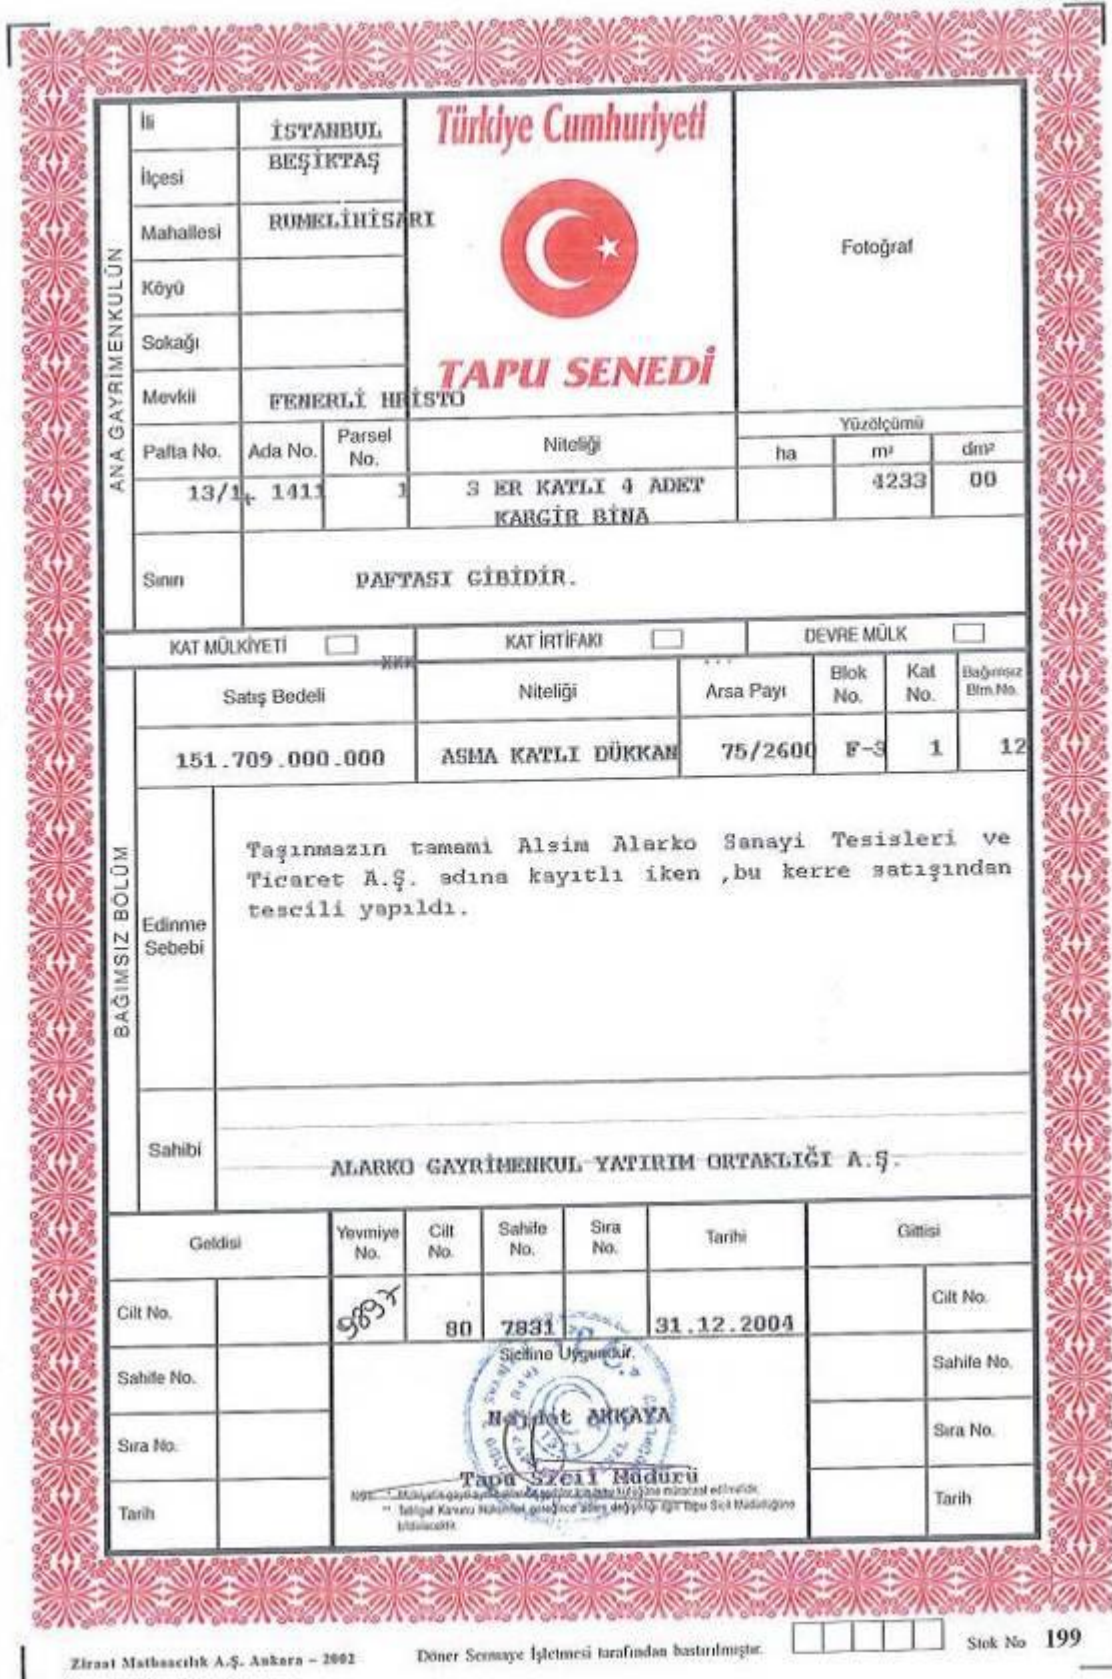 Türkiye Cumhuriyeti
TAPU SENEDİ
Fotoğraf
ANA GAYRİMENKULÜN
İli İSTANBUL
İlçesi BEŞİKTAŞ
Mahallesi RUMELİHİSARI
Köyü
Sokağı
Mevkii FENERLİ HRİSTO
Pafta No. Ada No. Parsel No. Niteliği Yüzölçümü
ha m² dm²
13/1 1411 1 3 ER KATLI 4 ADET 4233 00
KARGİR BİNA
Sınırı PAFTASI GİBİDİR.
KAT MÜLKİYETİ KAT İRTİFAKI DEVRE MÜLK
XXX
BAĞIMSIZ BÖLÜM
Satış Bedeli Niteliği Arsa Payı Blok No. Kat No. Bağımsız Blm.No.
151.709.000.000 ASMA KATLI DÜKKAN 75/2600 F-3 1 12
Edinme Sebebi
Taşınmazın tamami Alsim Alarko Sanayi Tesisleri ve
Ticaret A.Ş. adına kayıtlı iken ,bu kerre satışından
tescili yapıldı.
Sahibi
ALARKO GAYRİMENKUL YATIRIM ORTAKLIĞI A.Ş.
Geldisi Yevmiye No. Cilt No. Sahife No. Sıra No. Tarihi Gittisi
Cilt No. 9897 80 7831 31.12.2004 Cilt No.
Siciline Uygundur.
Sahife No. Sahife No.
AKKAYA
Sıra No. Sıra No.
Tapu Sicil Müdürü
Tarih Tarih
Ziraat Matbaacılık A.Ş. Ankara – 2002 Döner Sermaye İşletmesi tarafından bastırılmıştır. Stok No 199